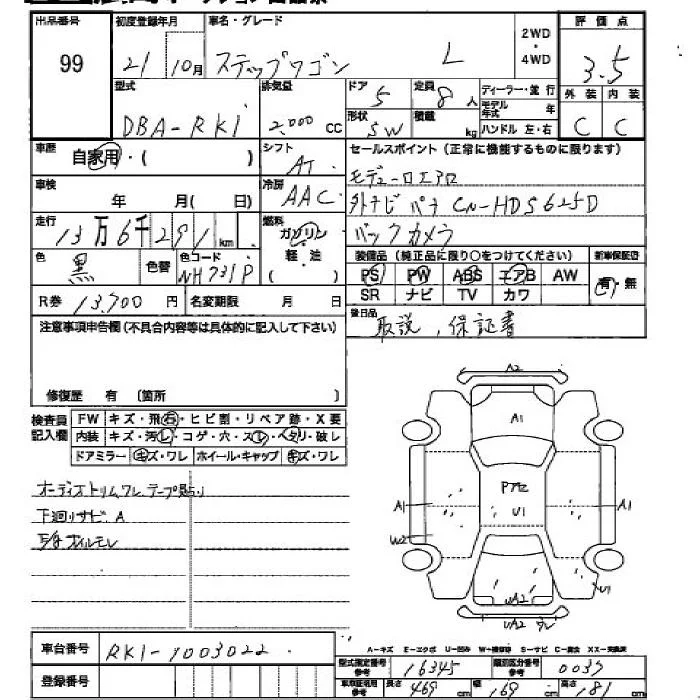 出品番号 初度登録年月 車名・グレード 2WD・4WD 評価点
99 21 10月 ステップワゴン L 3.5
型式 排気量 ドア 定員 ディーラー・並行 外装 内装
DBA-RK1 2,000 cc 5 8人 モデル年式 年 C C
形状 SW 積載 kg ハンドル 左・右
車歴 自家用・( ) シフト AT セールスポイント (正常に機能するものに限ります)
車検 年 月( 日) 冷房 AAC モデューロエアロ
外ナビ パナ CN-HDS625D
走行 13万6千291km 燃料 ガソリン 軽・油 ( ) バックカメラ
色 黒 色替 色コード NH731P 装備品 (純正品に限り○をつけてください) 新車保証書
PS PW ABS エアB AW 有・無
R券 13,700円 名変期限 月 日 SR ナビ TV カワ
注意事項申告欄 (不具合内容等は具体的に記入して下さい) 後日品 取説、保証書
修復歴 有 〔箇所 〕
検査員記入欄 FW キズ・飛石・ヒビ割・リペア跡・X要
内装 キズ・汚レ・コゲ・穴・スレ・ヘタリ・破レ
ドアミラー キズ・ワレ ホイール・キャップ キズ・ワレ
オーディオトリムワレ テープ
下廻りサビ A
オイルモレ
A2
A1
Pアセ
U1
A1
A1
W2
U1
UA2
UA2 ワレ
車台番号 RK1-1003022
A-キズ E-エクボ U-凹み W-補修跡 S-サビ C-腐食 XX-交換済
型式指定番号 参考 16345 類別区分番号 参考 0037
登録番号 車検証名用 参考 長さ 469 cm 幅 169 cm 高さ 181 cm